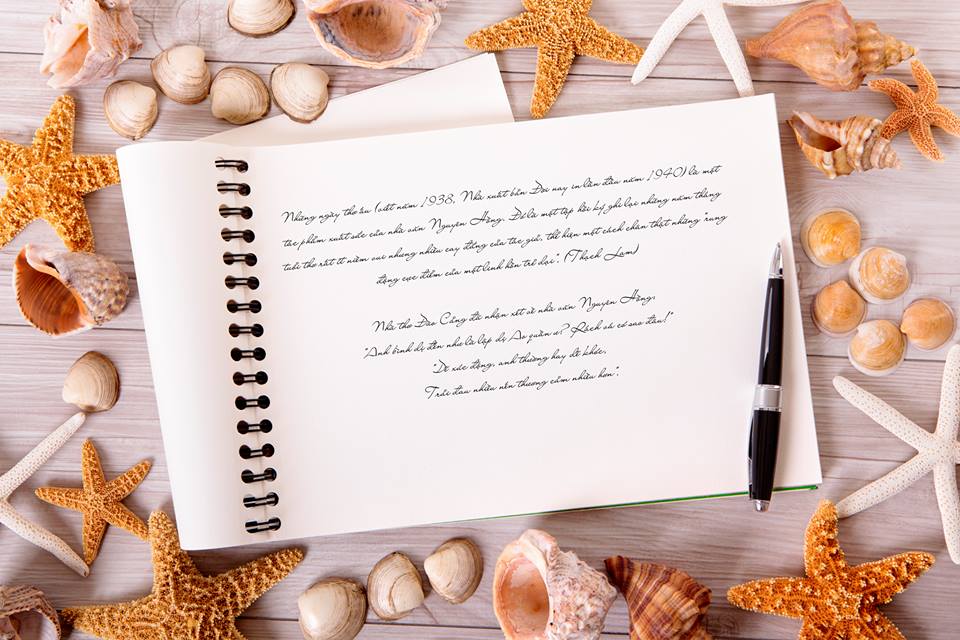 Những ngày thơ ấu (viết năm 1938, Nhà xuất bản Đời nay in lần đầu năm 1940) là một
tác phẩm xuất sắc của nhà văn Nguyên Hồng. Đó là một tập hồi ký ghi lại những năm tháng
tuổi thơ rất ít niềm vui nhưng nhiều cay đắng của tác giả, thể hiện một cách chân thật những "rung
động cực điểm của một linh hồn trẻ dại". (Thạch Lam)
Nhà thơ Đào Cảng đã nhận xét về nhà văn Nguyên Hồng:
"Anh bình dị đến như là lập dị Áo quần ư? Rách vá có sao đâu!"
"Dễ xúc động, anh thường hay dễ khóc,
Trải đau nhiều nên thương cảm nhiều hơn".